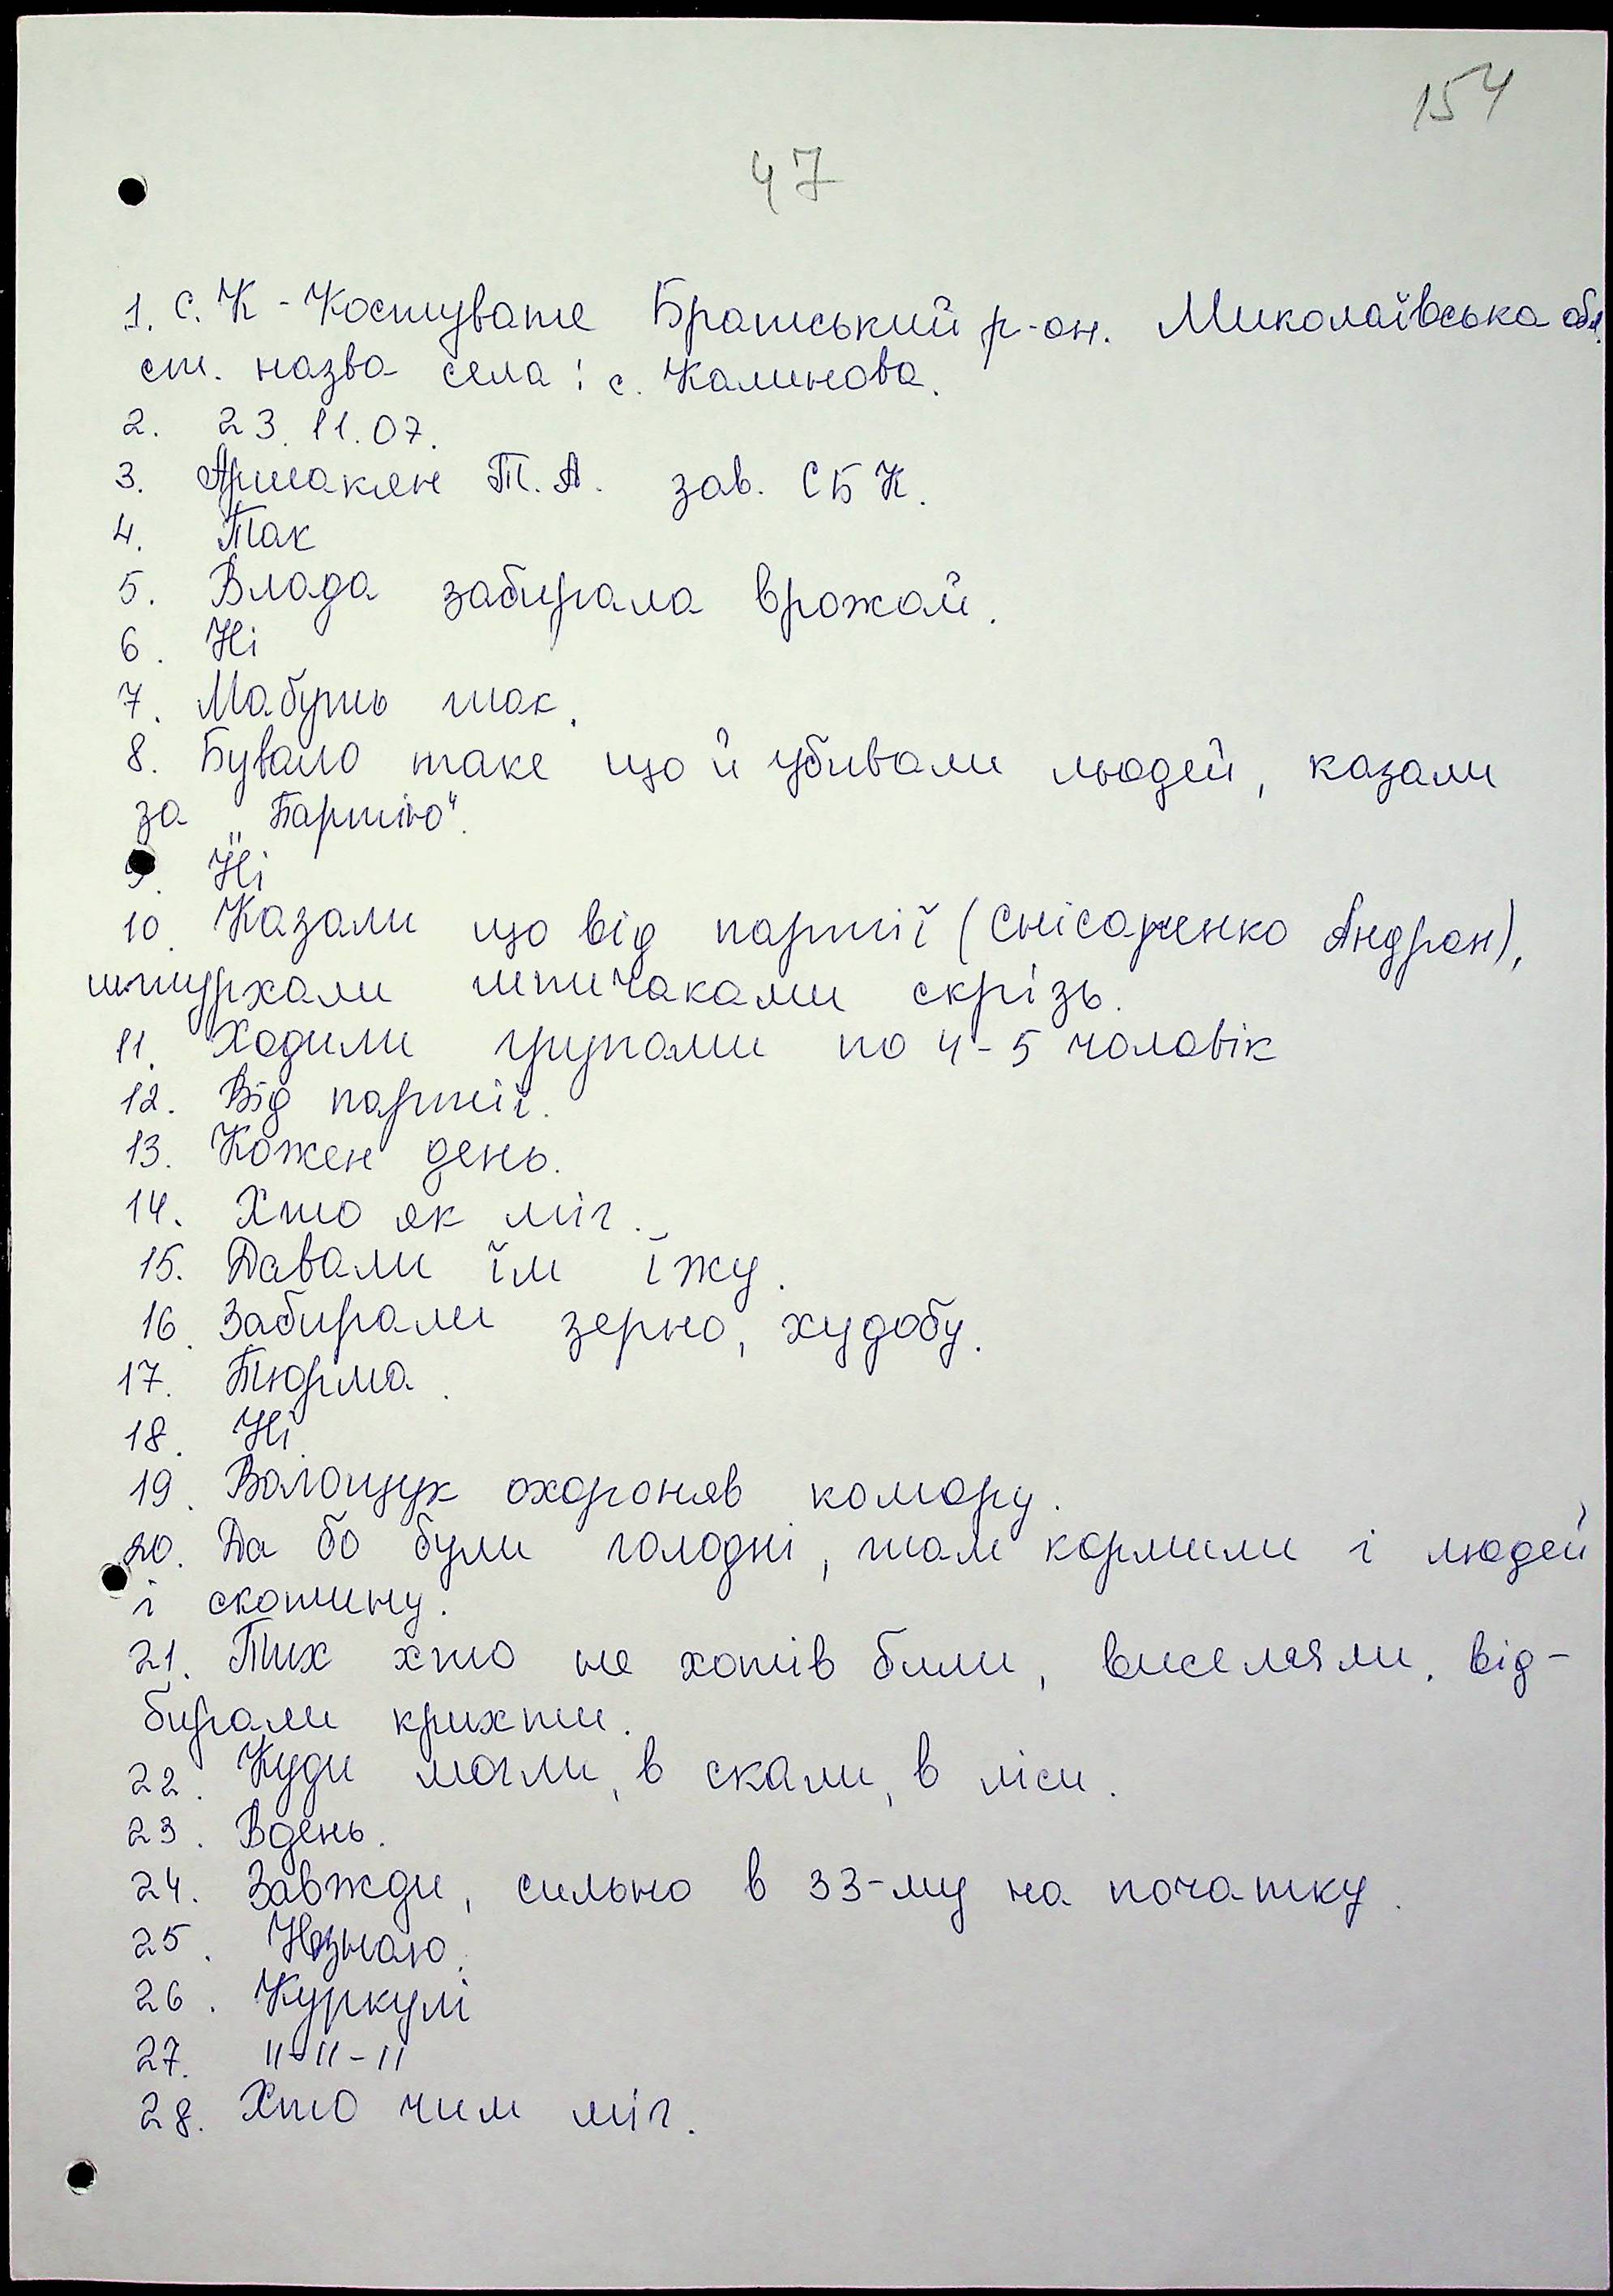 154
47
1. с. К-Костувате Братський р-он. Миколаївська обл.
ст. назва села: с. Калинова.
2. 23.11.07.
3. Т.А. зав. СБК.
4. Так
5. Влада забирала врожай.
6. Ні
7. Мабуть так.
8. Бувало таке що й убивали людей, казали
за „Партію".
9. Ні
10. Казали що від партії (Снісаренко Андрон),
штурхали шпичаками скрізь.
11. Ходили групами по 4-5 чоловік
12. Від партії.
13. Кожен день.
14. Хто як міг.
15. Давали їм їжу.
16. Забирали зерно, худобу.
17. Тюрма.
18. Ні.
19. Волощук охороняв комору.
20. Да бо були голодні, там кормили і людей
і скотину.
21. Тих хто не хотів били, виселяли, від-
бирали крихти.
22. Куди могли, в скали, в ліси.
23. Вдень.
24. Завжди, сильно в 33-му на початку.
25. Незнаю.
26. Куркулі
27. 11-11-11
28. Хто чим міг.